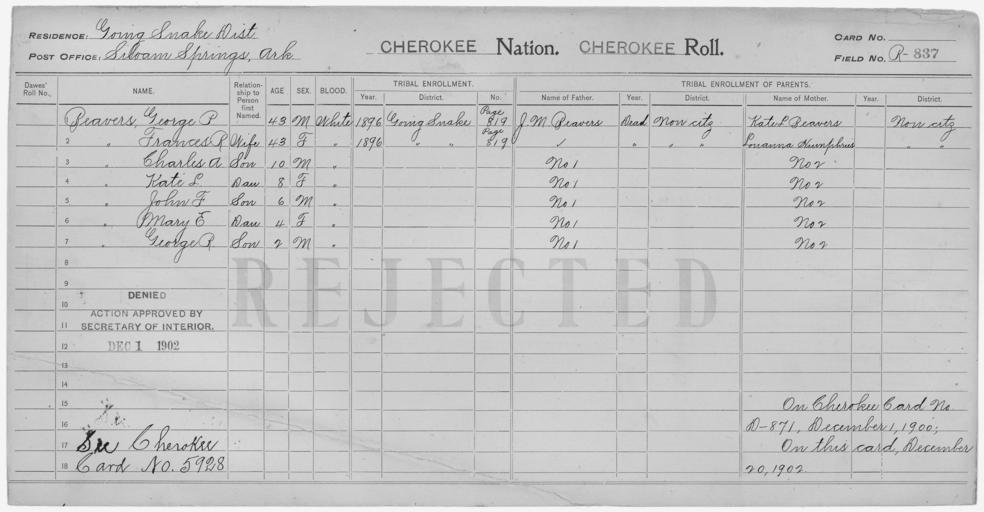 RESIDENCE: Going Snake Dist.
POST OFFICE: Siloam Springs, Ark
CHEROKEE Nation. CHEROKEE Roll.
CARD No.
FIELD No. R-837
Dawes' Roll No. NAME. Relationship to Person first Named. AGE SEX. BLOOD. TRIBAL ENROLLMENT. Year. District. No. TRIBAL ENROLLMENT OF PARENTS. Name of Father. Year. District. Name of Mother. Year. District.
Beavers, George P 43 M White 1896 Going Snake Page 819 J. M. Beavers Dead Non citz Kate L Beavers Non citz
2 " Frances R Wife 43 F " 1896 " " Page 819 " " " Louanna Humphries " "
3 " Charles A Son 10 M " No 1 No 2
4 " Kate L. Dau 8 F " No 1 No 2
5 " John F Son 6 M " No 1 No 2
6 " Mary E Dau 4 F " No 1 No 2
7 " George R Son 2 M " No 1 No 2
8
REJECTED
9
DENIED
10
ACTION APPROVED BY
11 SECRETARY OF INTERIOR.
12 DEC 1 1902
13
14
15 On Cherokee Card No.
16 D-871, December 1, 1900;
17 See Cherokee On this card, December
18 Card No. 5928 20, 1902.